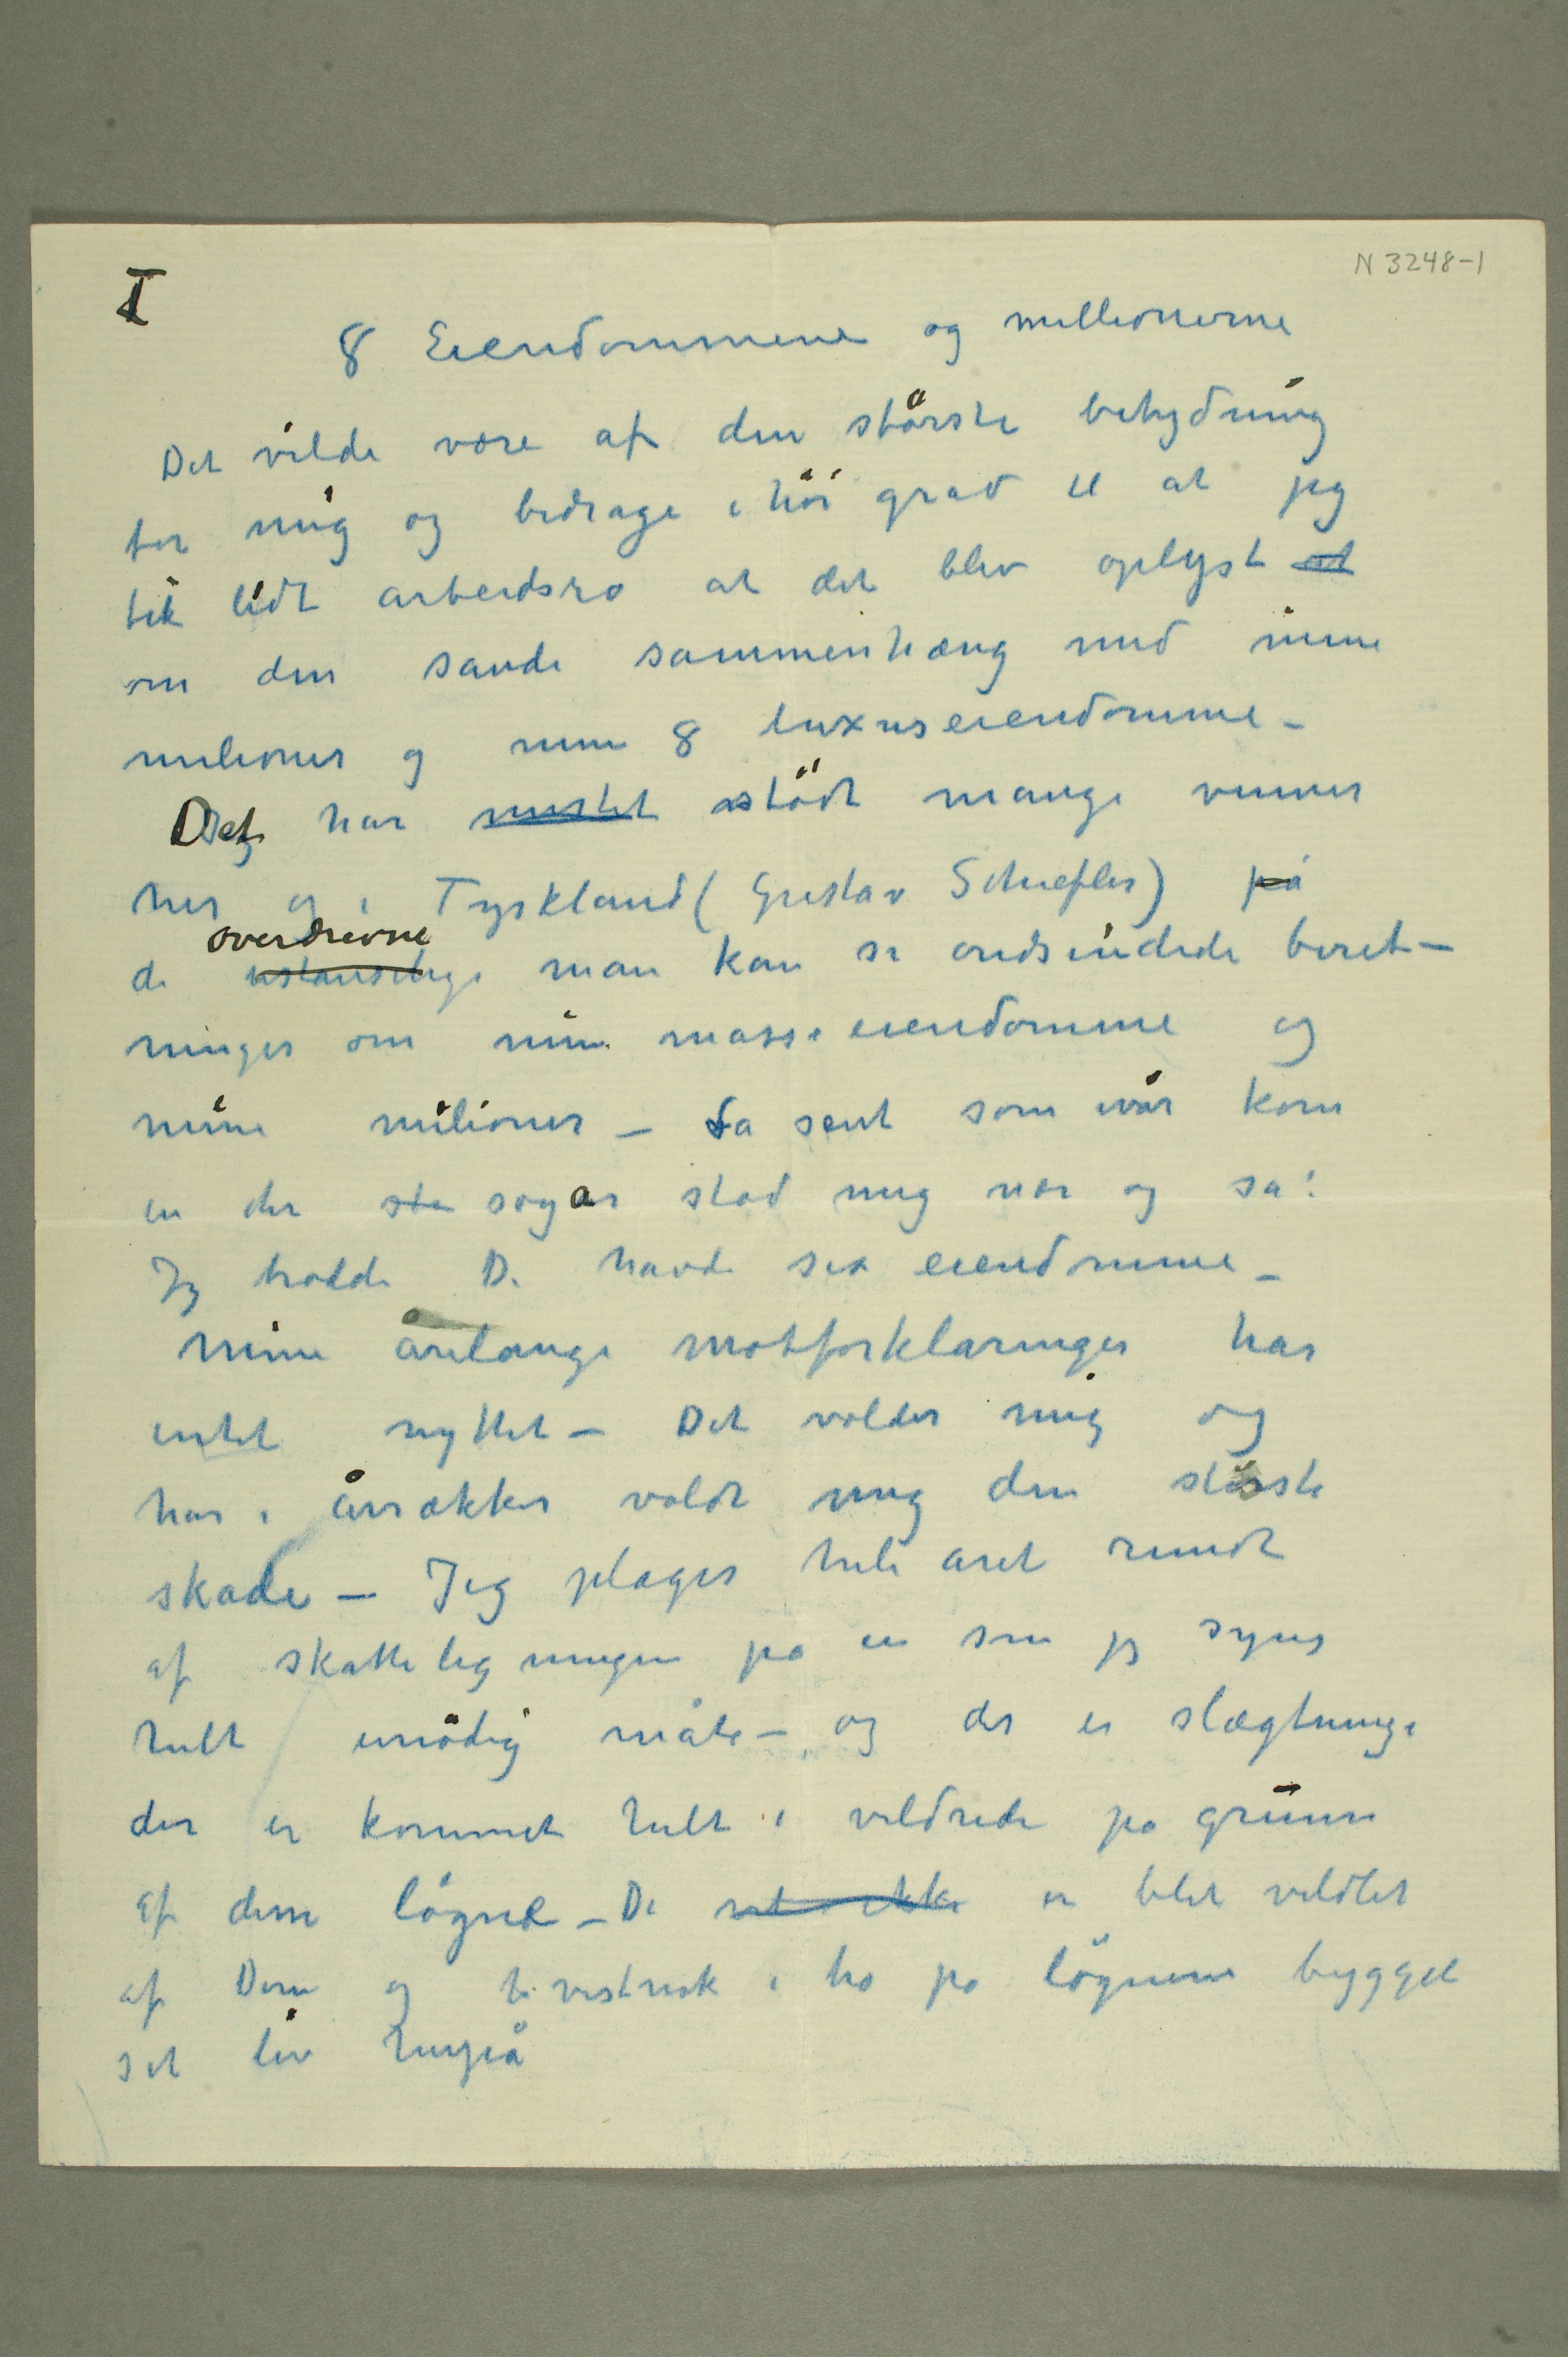 N 3248-1
I
8 Eiendommene og millionerne
Det vilde være af den störste betydning
for mig og bidrage i höi grad til at jeg
fik lidt arbeidsro at det blev oplyst at
om den sande sammenhæng med mine
milioner og mine 8 luxuseiendomme –
Det har mistet stödt mange venner
her og i Tyskland (Gustav Schiefler) på
overdrevne
de ustanselige man kan si ondsindede beret-
ninger om min masse eiendomme og
mine milioner – Sa sent som ivår kom
en der sta sogar stod mig nær og sa:
Jeg trodde De havde sex eiendomme –
Mine årelange motforklaringer har
intet nyttet – Det volder mig og
har i årrækker voldt mig den störste
skade – Jeg plages hele aret rundt
af skatteligningen på en som jeg synes
helt unödig måte – og der er slægtninge
der er kommet helt i vildrede pa grunn
af disse lögne – De ikke er blet vildlet
af Dem og har vistnok i tro pa lögnene bygget
sit liv herpå